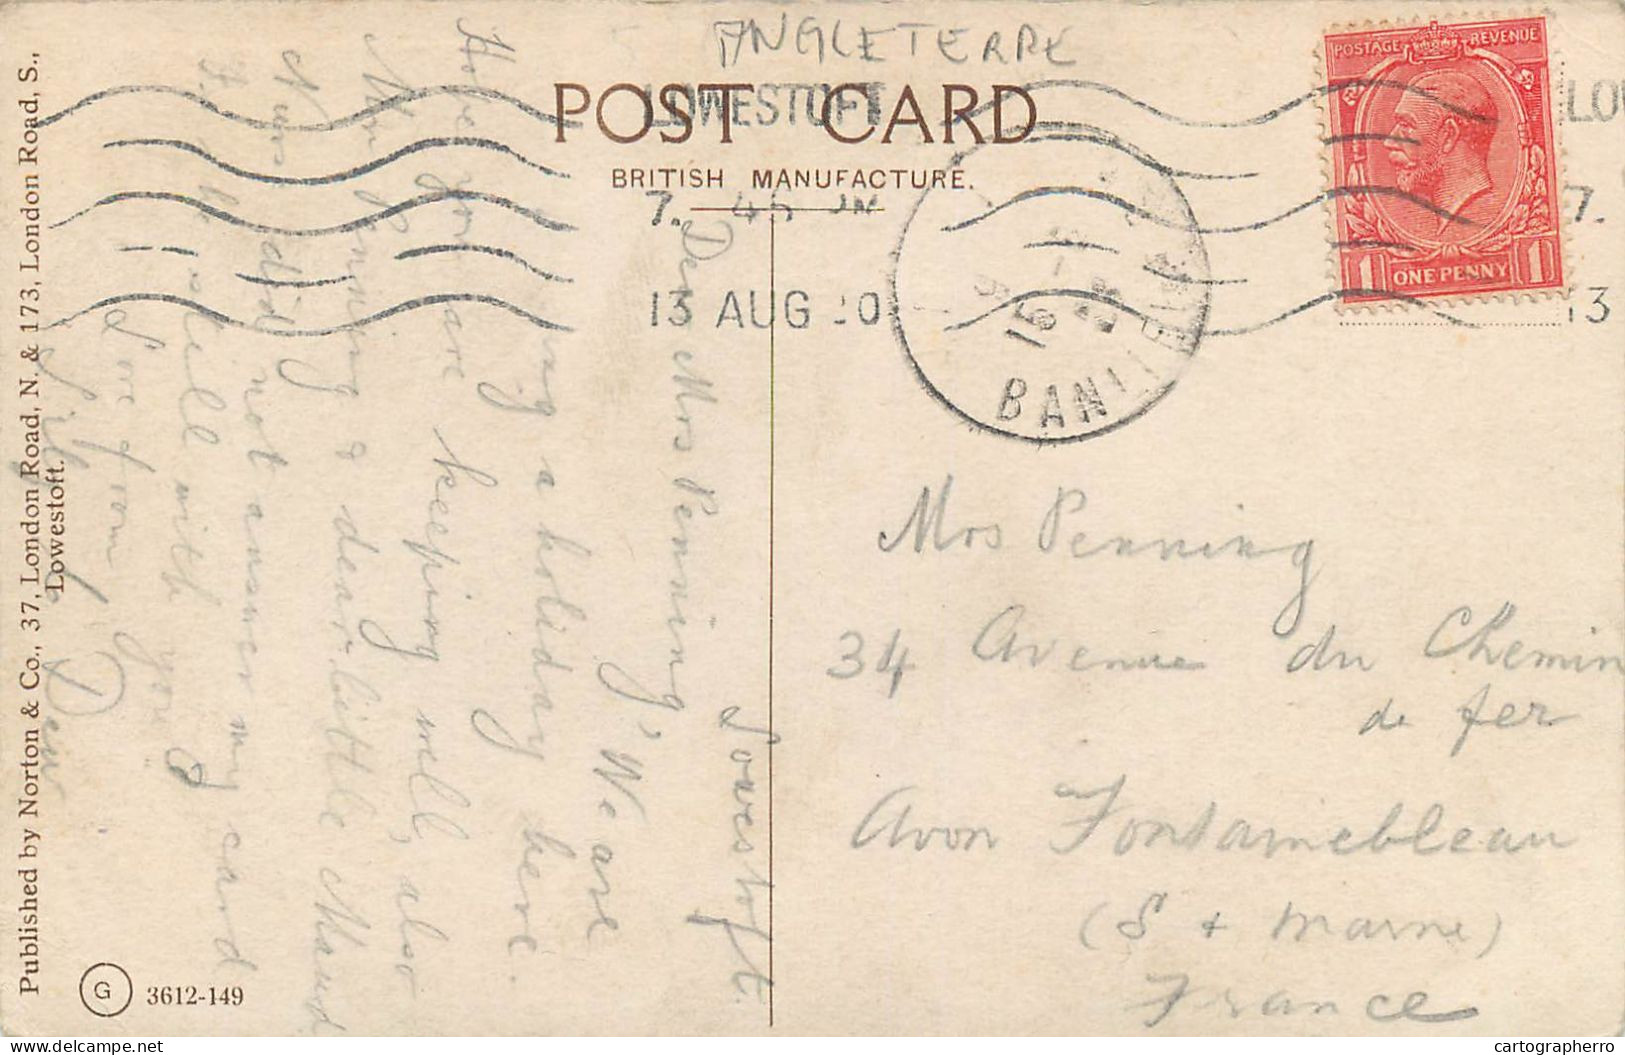 ANGLETERRE
POST CARD
BRITISH MANUFACTURE.
LOWESTOFT
7. 45 PM
13 AUG 20
LO
7.
13
15 - 8
BAN
POSTAGE REVENUE
1 ONE PENNY 1
Lowestoft.
Dear Mrs Penning, We are
a holiday here.
Hope you are keeping well, also
Mr Penning & dear little Maud
Nurse did not answer my card
is still with you
Love from
Dew
Mrs Penning
34 Avenue du Chemin
de fer
Avon Fontainebleau
(S + Marne)
France
Published by Norton & Co., 37, London Road, N. & 173, London Road, S.,
Lowestoft.
G 3612-149
delcampe.net
cartographerro